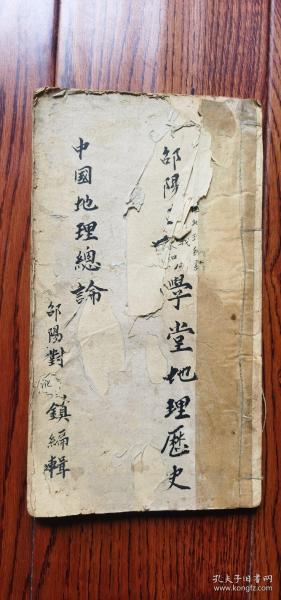 邵陽學堂地理歷史
中國地理總論
邵陽對鎮編輯
孔夫子旧书网
www.kongfz.com